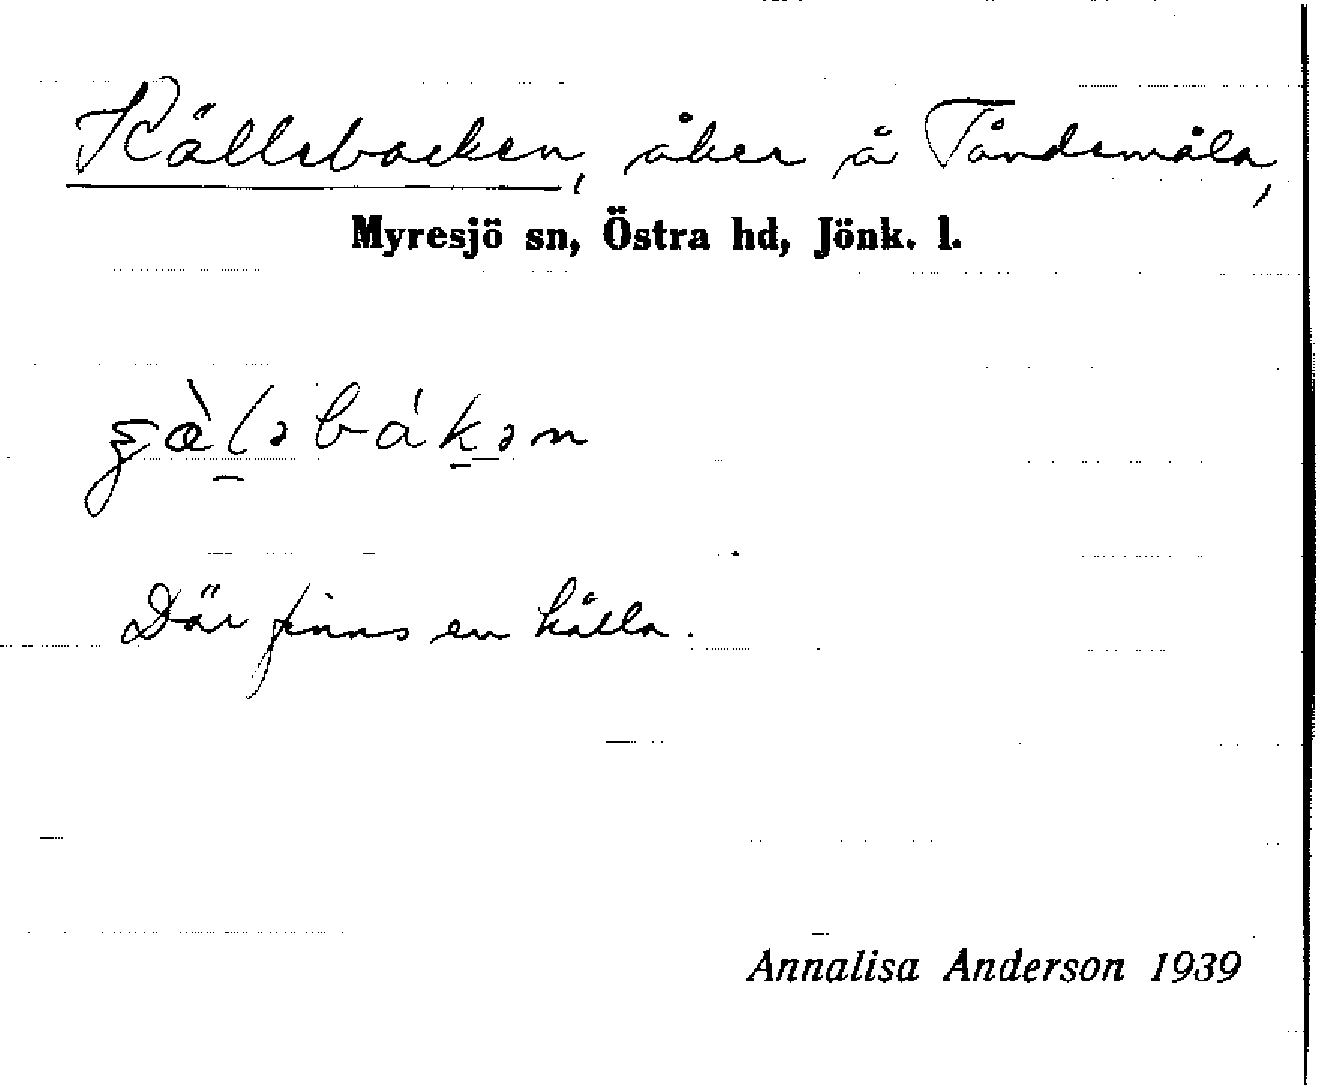 Källebacken, åker å Tåndsmåla,
Myresjö sn, Östra hd, Jönk. l.
Där finns en källa.
Annalisa Anderson 1939